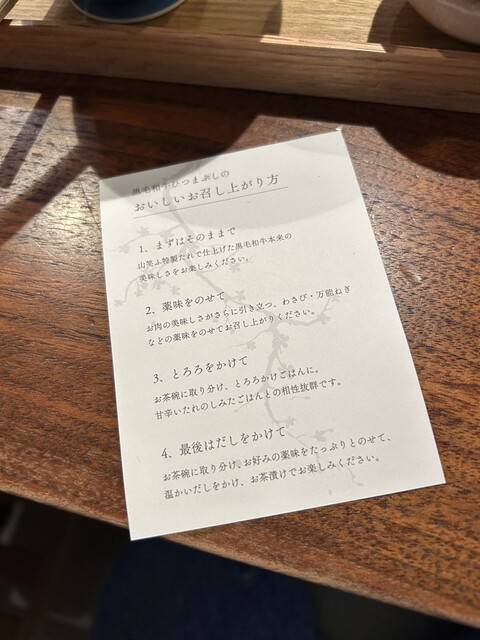 黒毛和牛ひつまぶしの
おいしいお召し上がり方
1、まずはそのままで
山笑ふ特製だれで仕上げた黒毛和牛本来の
美味しさをお楽しみください。
2、薬味をのせて
お肉の美味しさがさらに引き立つ、わさび・万能ねぎ
などの薬味をのせてお召し上がりください。
3、とろろをかけて
お茶碗に取り分け、とろろかけごはんに。
甘辛いたれのしみたごはんとの相性抜群です。
4、最後はだしをかけて
お茶碗に取り分け、お好みの薬味をたっぷりとのせて、
温かいだしをかけ、お茶漬けでお楽しみください。